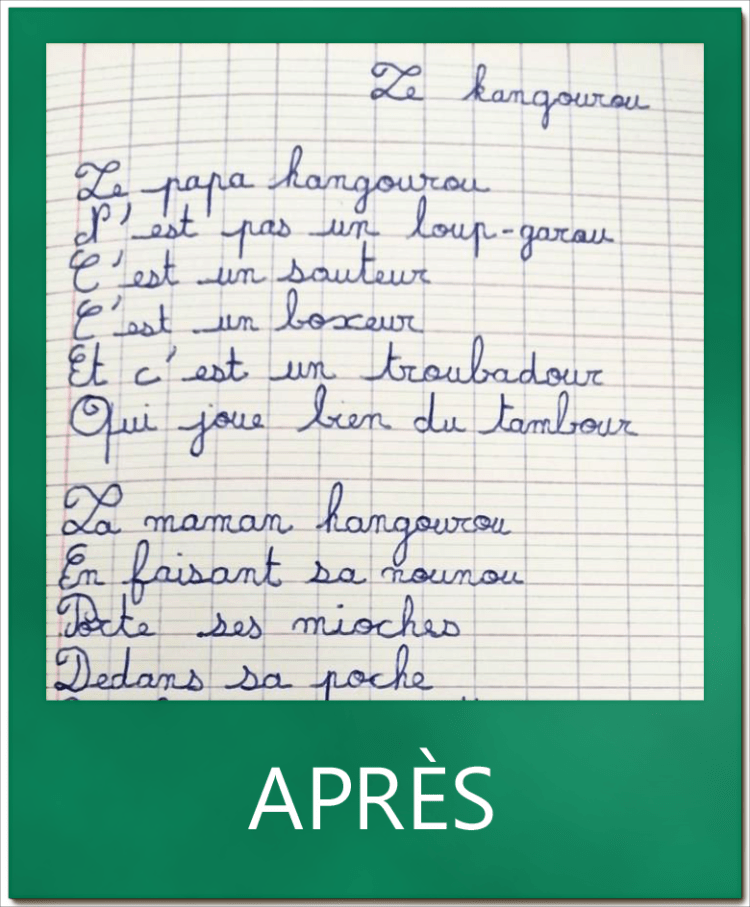 Le kangourou
Le papa kangourou
N'est pas un loup-garou
C'est un sauteur
C'est un boxeur
Et c'est un troubadour
Qui joue bien du tambour
La maman kangourou
En faisant sa nounou
Porte ses mioches
Dedans sa poche
APRÈS